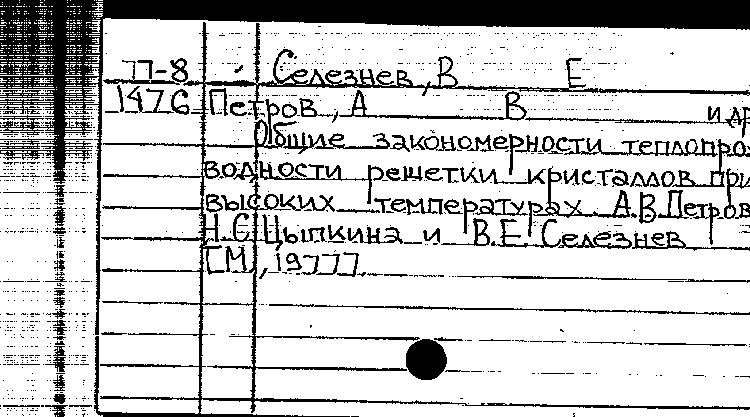 П-8 Селезнев, В Е
1476 Петров, А В и др
Общие закономерности теплопро-
водности решетки кристаллов при
высоких температурах. А.В.Петров
Н.С.Цыпкина и В.Е. Селезнев
[М], 1977].